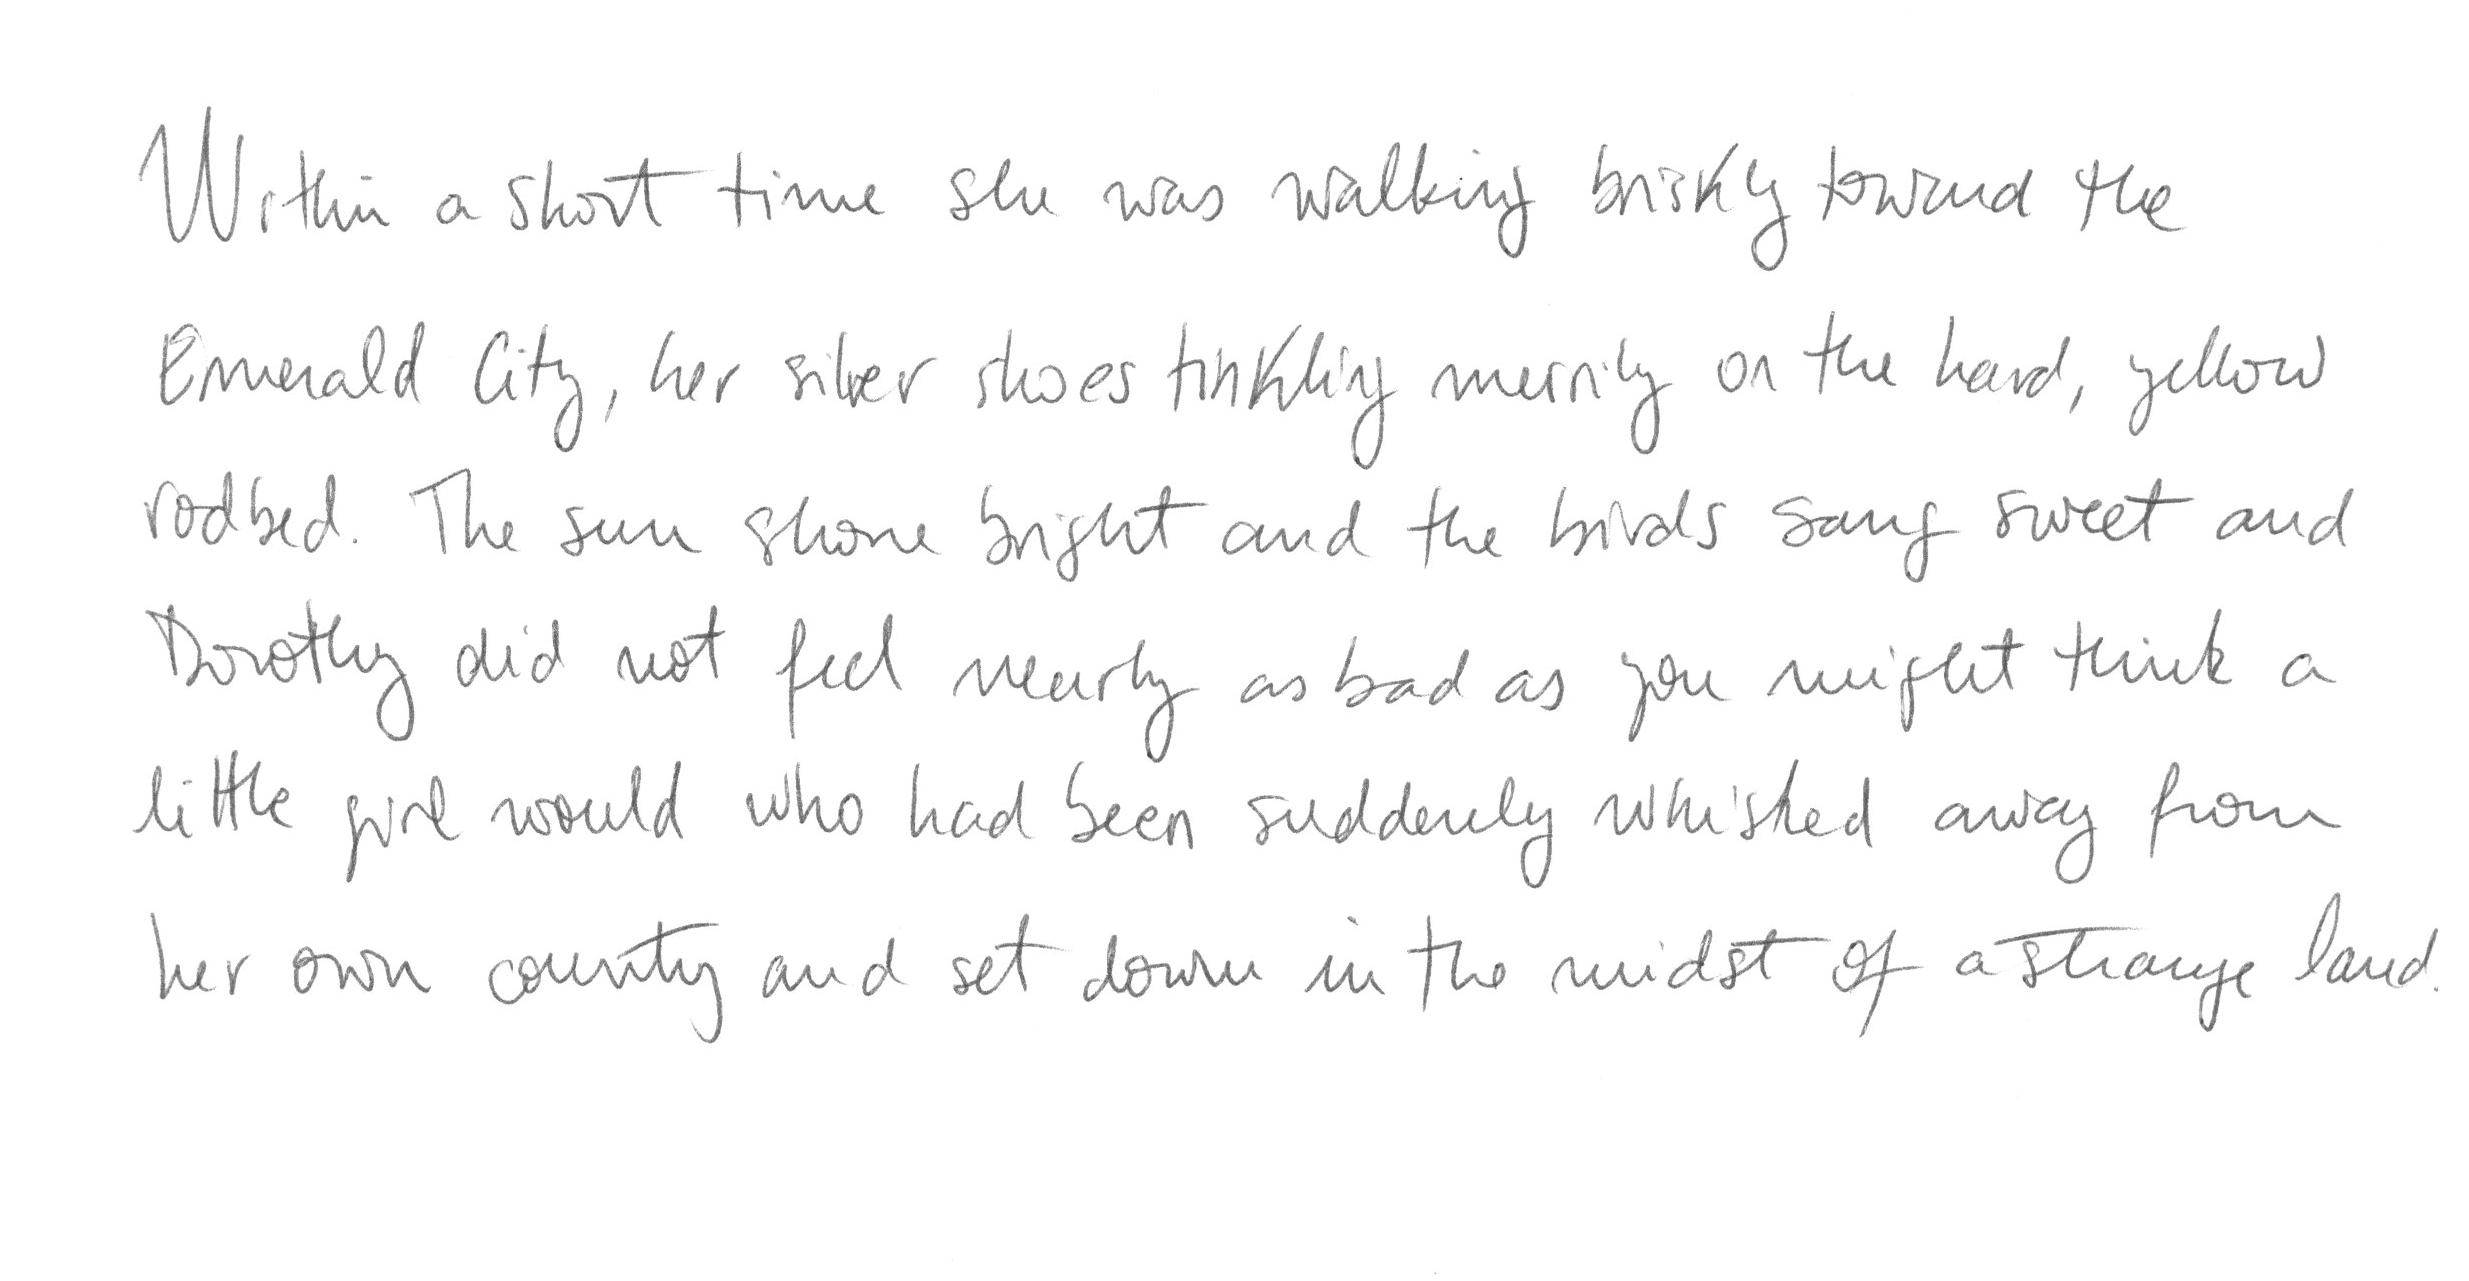 Within a short time she was walking briskly toward the
Emerald City, her silver shoes tinkling merrily on the hard, yellow
rodbed. The sun shone bright and the birds sang sweet and
Dorothy did not feel nearly as bad as you might think a
little girl would who had been suddenly whished away from
her own county and set down in the midst of a strange land.